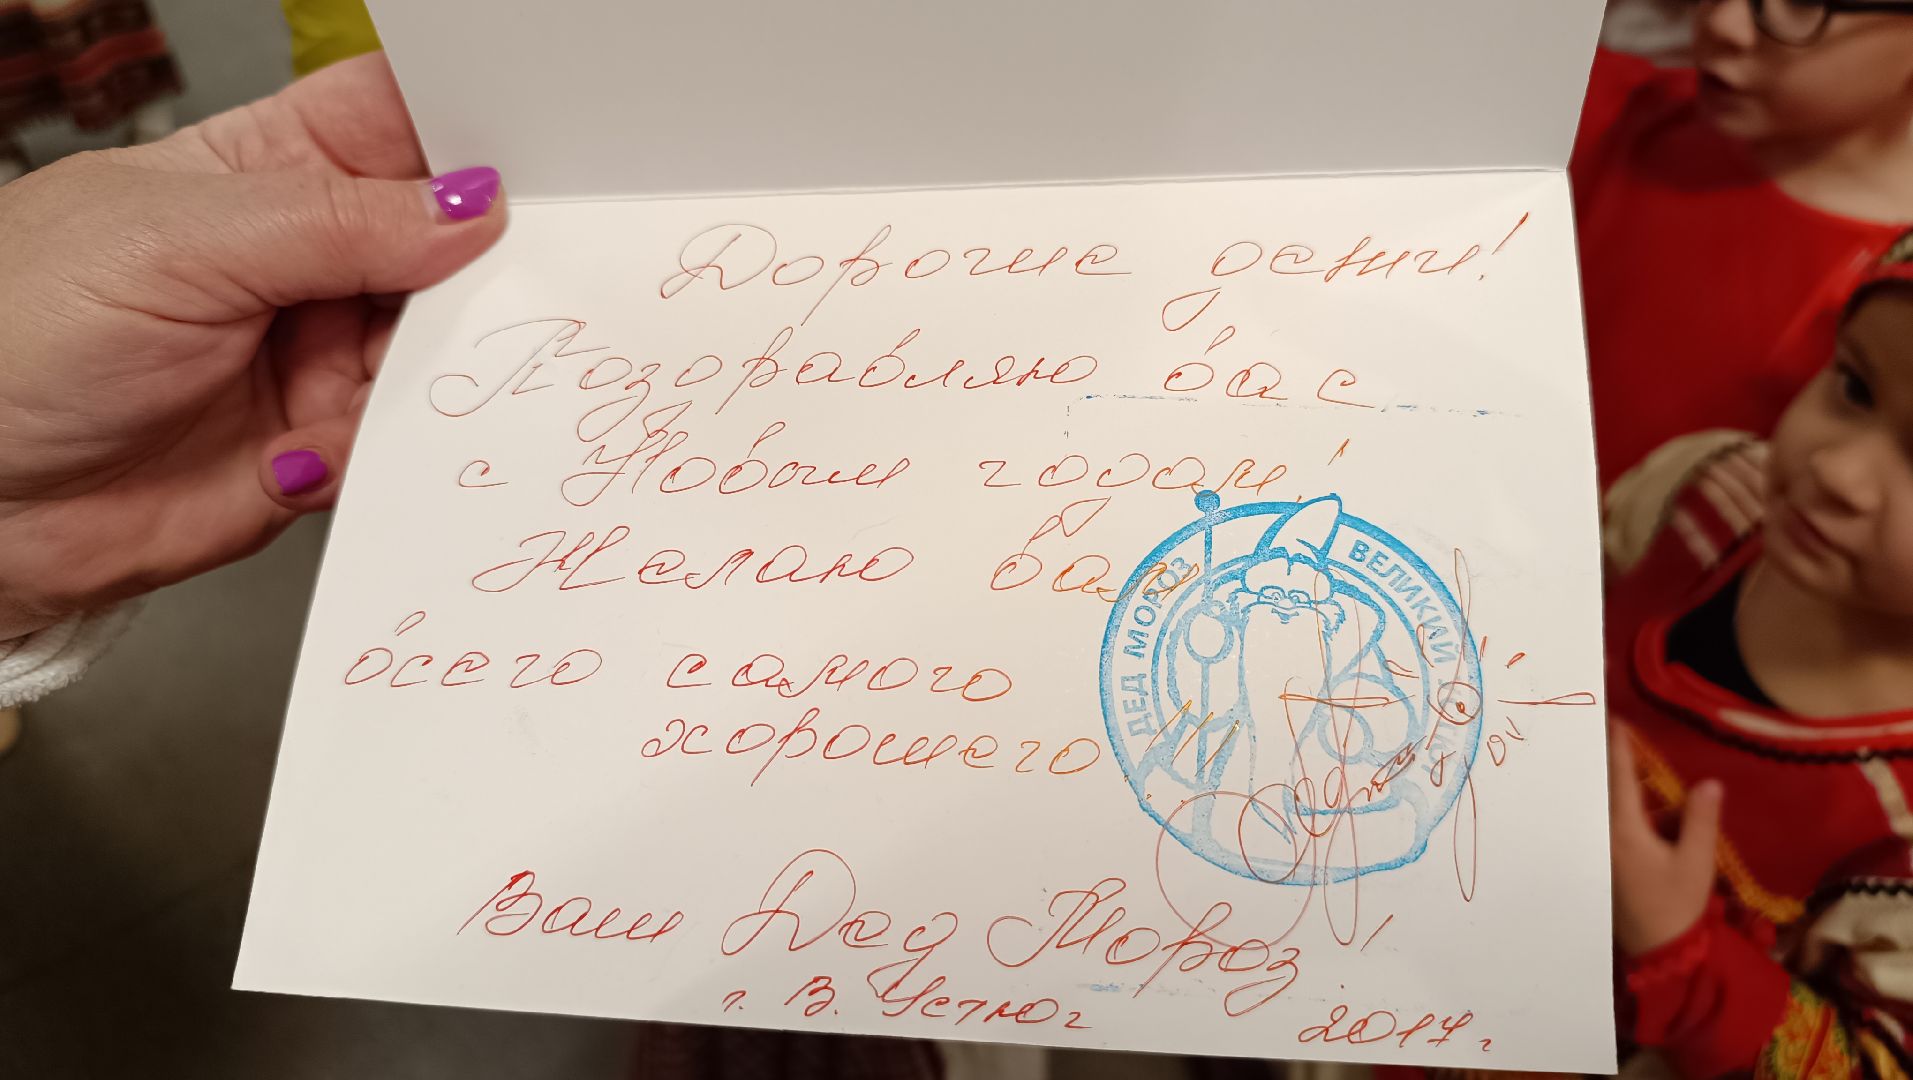 Дорогие дети!
Поздравляю вас
с Новым годом!
Желаю вам
всего самого
хорошего!!!
ДЕД МОРОЗ
ВЕЛИКИЙ УСТЮГ
Ваш Дед Мороз!
г. В. Устюг 2017г